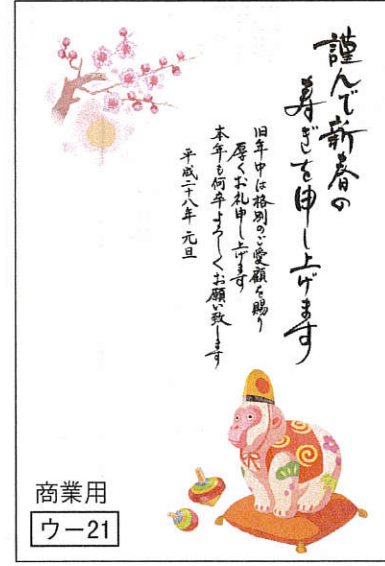 謹んで新春の
寿ぎを申し上げます
旧年中は格別のご愛顧を賜り
厚くお礼申し上げます
本年も何卒よろしくお願い致します
平成二十八年 元旦
商業用
ウー21